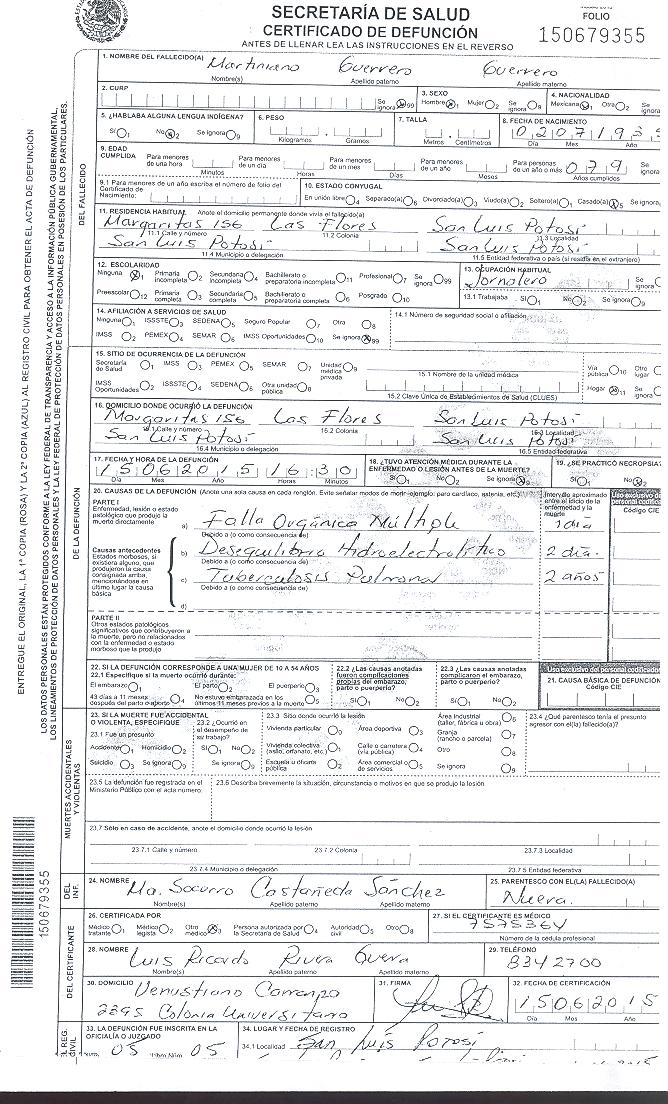 SECRETARÍA DE SALUD
CERTIFICADO DE DEFUNCIÓN
ANTES DE LLENAR LEA LAS INSTRUCCIONES EN EL REVERSO
FOLIO
150679355
ENTREGUE EL ORIGINAL, LA 1ª COPIA (ROSA) Y LA 2ª COPIA (AZUL) AL REGISTRO CIVIL PARA OBTENER EL ACTA DE DEFUNCIÓN
LOS DATOS PERSONALES ESTÁN PROTEGIDOS CONFORME A LA LEY FEDERAL DE TRANSPARENCIA Y ACCESO A LA INFORMACIÓN PÚBLICA GUBERNAMENTAL,
LOS LINEAMIENTOS DE PROTECCIÓN DE DATOS PERSONALES Y LA LEY FEDERAL DE PROTECCIÓN DE DATOS PERSONALES EN POSESIÓN DE LOS PARTICULARES.
150679355
DEL FALLECIDO
1. NOMBRE DEL FALLECIDO(A) Martiniano Guerrero Guerrero
Nombre(s) Apellido paterno Apellido paterno
2. CURP Se ignora 99 3. SEXO Hombre 1 Mujer 2 Se ignora 9 4. NACIONALIDAD Mexicana 1 Otra 2 Se ignora
5. ¿HABLABA ALGUNA LENGUA INDÍGENA? Sí 1 No 2 Se ignora 9 6. PESO Kilogramos Gramos 7. TALLA Metros Centímetros 8. FECHA DE NACIMIENTO 0207193
Día Mes Año
9. EDAD CUMPLIDA Para menores de una hora Minutos Para menores de un día Horas Para menores de un mes Días Para menores de un año Meses Para personas de un año o más 079 Años cumplidos
9.1 Para menores de un año escriba el número de folio del Certificado de Nacimiento:
10. ESTADO CONYUGAL En unión libre 4 Separado(a) 6 Divorciado(a) 3 Viudo(a) 2 Soltero(a) 1 Casado(a) 5 Se ignora
11. RESIDENCIA HABITUAL Anote el domicilio permanente donde vivía el fallecido(a)
Margaritas 156 Las Flores San Luis Potosí
11.1 Calle y número 11.2 Colonia 11.3 Localidad
San Luis Potosí San Luis Potosí
11.4 Municipio o delegación 11.5 Entidad federativa o país (si residía en el extranjero)
12. ESCOLARIDAD 13. OCUPACIÓN HABITUAL
Ninguna 1 Primaria incompleta 2 Secundaria incompleta 4 Bachillerato o preparatoria incompleta 11 Profesional 7 Se ignora 99 Jornalero
Preescolar 12 Primaria completa 3 Secundaria completa 5 Bachillerato o preparatoria completa 6 Posgrado 10 13.1 Trabajaba Sí 1 No 2 Se ignora
14. AFILIACIÓN A SERVICIOS DE SALUD 14.1 Número de seguridad social o afiliación
Ninguna 1 ISSSTE 3 SEDENA 5 Seguro Popular 7 Otra 8
IMSS 2 PEMEX 4 SEMAR 6 IMSS Oportunidades 10 Se ignora 99
DE LA DEFUNCIÓN
15. SITIO DE OCURRENCIA DE LA DEFUNCIÓN
Secretaría de Salud 1 IMSS 3 PEMEX 5 SEMAR 7 Unidad médica privada 9 15.1 Nombre de la unidad médica Vía pública 10 Otro lugar
IMSS Oportunidades 2 ISSSTE 4 SEDENA 6 Otra unidad pública 8 15.2 Clave Única de Establecimientos de Salud (CLUES) Hogar 11 Se ignora
16. DOMICILIO DONDE OCURRIÓ LA DEFUNCIÓN
Margaritas 156 Las Flores San Luis Potosí
16.1 Calle y número 16.2 Colonia 16.3 Localidad
San Luis Potosí San Luis Potosí
16.4 Municipio o delegación 16.5 Entidad federativa
17. FECHA Y HORA DE LA DEFUNCIÓN 18. ¿TUVO ATENCIÓN MÉDICA DURANTE LA ENFERMEDAD O LESIÓN ANTES DE LA MUERTE? 19. ¿SE PRACTICÓ NECROPSIA?
15062015 16:30 Sí 1 No 2 Se ignora 9 Sí 1 No 2
Día Mes Año Horas Minutos
20. CAUSAS DE LA DEFUNCIÓN (Anote una sola causa en cada renglón. Evite señalar modos de morir-ejemplo: paro cardíaco, astenia, etc.)
Intervalo aproximado entre el inicio de la enfermedad y la muerte
Uso exclusivo del personal codificador
Código CIE
PARTE I
Enfermedad, lesión o estado patológico que produjo la muerte directamente
a) Falla Orgánica Múltiple 1 día
Debido a (o como consecuencia de)
Causas antecedentes
Estados morbosos, si existiera alguno, que produjeron la causa consignada arriba, mencionándose en último lugar la causa básica
b) Desequilibrio Hidroelectrolítico 2 día.
Debido a (o como consecuencia de)
c) Tuberculosis Pulmonar 2 años
Debido a (o como consecuencia de)
d)
PARTE II
Otros estados patológicos significativos que contribuyeron a la muerte, pero no relacionados con la enfermedad o estado morboso que la produjo
22. SI LA DEFUNCIÓN CORRESPONDE A UNA MUJER DE 10 A 54 AÑOS
22.1 Especifique si la muerte ocurrió durante:
El embarazo 1 El parto 2 El puerperio 3
43 días a 11 meses después del parto o aborto 4 No estuvo embarazada en los últimos 11 meses previos a la muerte 5
22.2 ¿Las causas anotadas fueron complicaciones propias del embarazo, parto o puerperio? Sí 1 No 2
22.3 ¿Las causas anotadas complicaron el embarazo, parto o puerperio? Sí 1 No 2
Uso exclusivo del personal codificador
21. CAUSA BÁSICA DE DEFUNCIÓN
Código CIE
MUERTES ACCIDENTALES Y VIOLENTAS
23. SI LA MUERTE FUE ACCIDENTAL O VIOLENTA, ESPECIFIQUE
23.1 Fue un presunto
Accidente 1 Homicidio 2
Suicidio 3 Se ignora 9
23.2 ¿Ocurrió en el desempeño de su trabajo?
Sí 1 No 2
Se ignora 9
23.3 Sitio donde ocurrió la lesión
Vivienda particular 0 Área deportiva 3 Área industrial (taller, fábrica u obra) 6
Vivienda colectiva (asilo, orfanato, etc.) 1 Calle o carretera (vía pública) 4 Granja (rancho o parcela) 7
Escuela u oficina pública 2 Área comercial o de servicios 5 Otro 8
Se ignora 9
23.4 ¿Qué parentesco tenía el presunto agresor con el(la) fallecido(a)?
23.5 La defunción fue registrada en el Ministerio Público con el acta número:
23.6 Describa brevemente la situación, circunstancia o motivos en que se produjo la lesión.
23.7 Sólo en caso de accidente, anote el domicilio donde ocurrió la lesión
23.7.1 Calle y número 23.7.2 Colonia 23.7.3 Localidad
23.7.4 Municipio o delegación 23.7.5 Entidad federativa
DEL INF.
24. NOMBRE Ma. Socorro Castañeda Sánchez
Nombre(s) Apellido paterno Apellido paterno
25. PARENTESCO CON EL(LA) FALLECIDO(A)
Nuera.
DEL CERTIFICANTE
26. CERTIFICADA POR
Médico tratante 1 Médico legista 2 Otro médico 3 Persona autorizada por la Secretaría de Salud 4 Autoridad civil 5 Otro 8
27. SI EL CERTIFICANTE ES MÉDICO
7575364
Número de la cédula profesional
28. NOMBRE Luis Ricardo Rivera Guerra
Nombre(s) Apellido paterno Apellido materno
29. TELÉFONO
8342700
30. DOMICILIO Venustiano Carranza
2395 Colonia Universitaria
31. FIRMA
32. FECHA DE CERTIFICACIÓN
15062015
Día Mes Año
EL REG. CIVIL
33. LA DEFUNCIÓN FUE INSCRITA EN LA OFICIALÍA O JUZGADO
05 05
34. LUGAR Y FECHA DE REGISTRO
34.1 Localidad San Luis Potosí